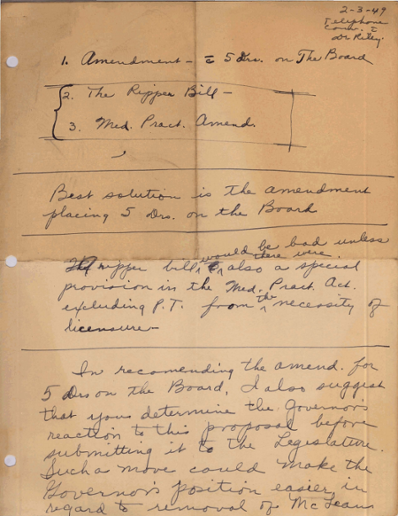 2-3-49
Telephone
Conver. c̄
Dr Riley.
1. Amendment - c̄ 5 Drs. on The Board
2. The Ripper Bill -
3. Med. Pract. Amend.
Best solution is the amendment
placing 5 Drs. on the Board
ripper bill would be bad unless
there were also a special
provision in the Med. Pract. Act.
excluding P.T. from the necessity of
licensure -
In recomending the amend. for
5 Drs on the Board, I also suggest
that you determine the Governor's
reaction to this proposal before
submitting it to the Legislature.
Such a move could make the
Governor's position easier in
regard to removal of McLeans